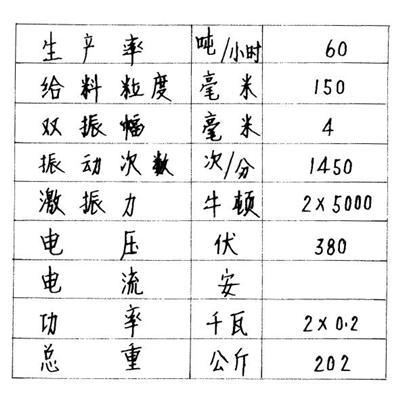 生产率 吨/小时 60
给料粒度 毫米 150
双振幅 毫米 4
振动次数 次/分 1450
激振力 牛顿 2×5000
电压 伏 380
电流 安
功率 千瓦 2×0.2
总重 公斤 202